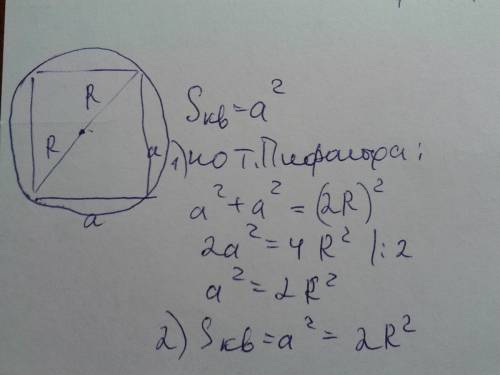 R
R
a
a
Sкв=a²
1) по т. Пифагора:
a²+a²=(2R)²
2a²=4R² |:2
a²=2R²
2) Sкв=a²=2R²